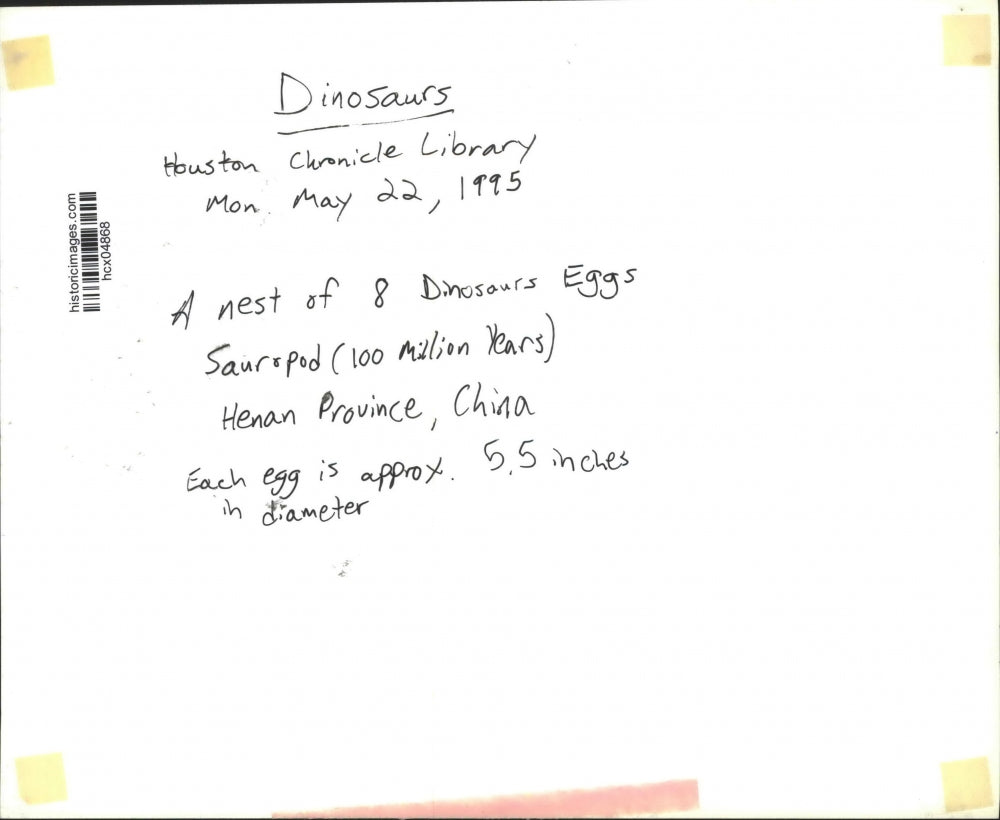 Dinosaurs
Houston Chronicle Library
Mon. May 22, 1995
historicimages.com
hcx04868
A nest of 8 Dinosaurs Eggs
Sauropod (100 Million Years)
Henan Province, China
Each egg is approx. 5.5 inches
in diameter